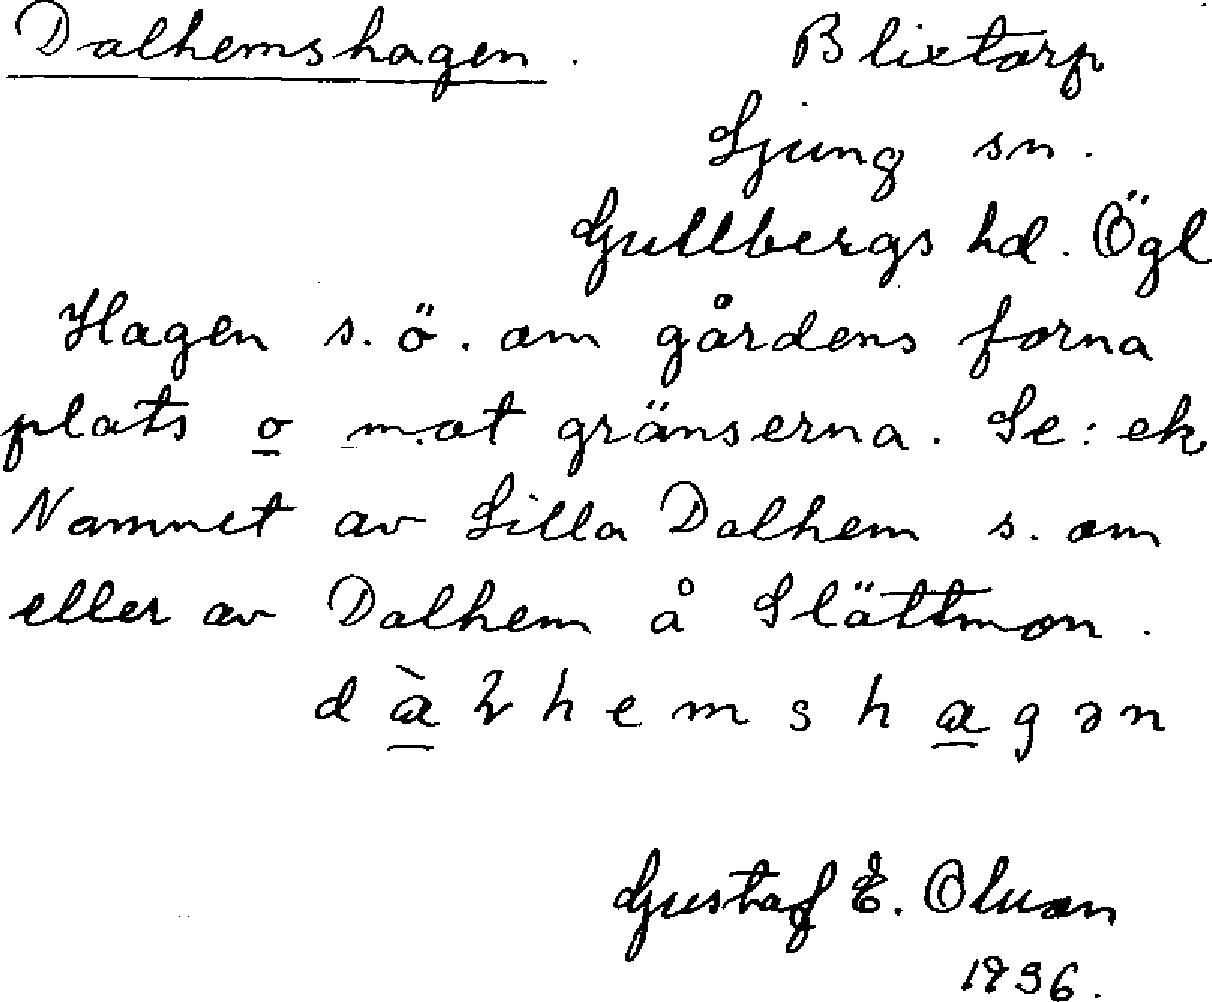 Dalhemshagen. Blixtorp
Ljung sn.
Gullbergs hd. Ögl
Hagen s.ö. om gårdens forna
plats o mot gränserna. Se: ek
Namnet av Lilla Dalhem s. om
eller av Dalhem å Slättmon.
dàlhemshagən
Gustaf E. Olsson
1936.